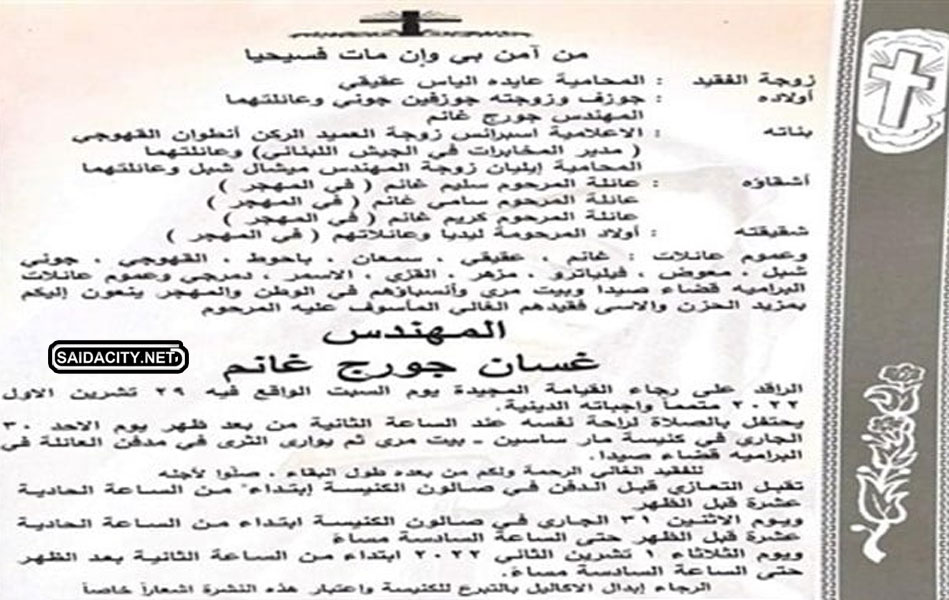 من آمن بي وإن مات فسيحيا
زوجة الفقيد : المحامية عايده الياس عقيقي
أولاده : جوزف وزوجته جوزفين جوني وعائلتهما
المهندس جورج غانم
بناته : الاعلامية اسبرانس زوجة العميد الركن أنطوان القهوجي
( مدير المخابرات في الجيش اللبناني) وعائلتهما
المحامية إيليان زوجة المهندس ميشال شبل وعائلتهما
أشقاؤه : عائلة المرحوم سليم غانم ( في المهجر )
عائلة المرحوم سامي غانم ( في المهجر )
عائلة المرحوم كريم غانم ( في المهجر )
شقيقته : أولاد المرحومة ليديا وعائلاتهم ( في المهجر )
وعموم عائلات : غانم ، عقيقي ، سمعان ، باحوط ، القهوجي ، جوني
شبل ، معوض ، فيلباترو ، مزهر ، القزي ، الاسمر ، دمرجي وعموم عائلات
البراميه قضاء صيدا وبيت مري وأنسباؤهم في الوطن والمهجر ينعون إليكم
بمزيد الحزن والاسى فقيدهم الغالي المأسوف عليه المرحوم
المهندس
غسان جورج غانم
SAIDACITY.NET
الراقد على رجاء القيامة المجيدة يوم السبت الواقع فيه ٢٩ تشرين الاول
٢٠٢٢ متمماً واجباته الدينية.
يحتفل بالصلاة لراحة نفسه عند الساعة الثانية من بعد ظهر يوم الاحد ٣٠
الجاري في كنيسة مار ساسين - بيت مري ثم يوارى الثرى في مدفن العائلة في
البراميه قضاء صيدا.
للفقيد الغالي الرحمة ولكم من بعده طول البقاء ، صلّوا لأجله
تقبل التعازي قبل الدفن في صالون الكنيسة إبتداء من الساعة الحادية
عشرة قبل الظهر
ويوم الاثنين ٣١ الجاري في صالون الكنيسة ابتداء من الساعة الحادية
عشرة قبل الظهر حتى الساعة السادسة مساءً
ويوم الثلاثاء ١ تشرين الثاني ٢٠٢٢ ابتداء من الساعة الثانية بعد الظهر
حتى الساعة السادسة مساءً.
الرجاء إبدال الاكاليل بالتبرع للكنيسة واعتبار هذه النشرة اشعاراً خاصاً